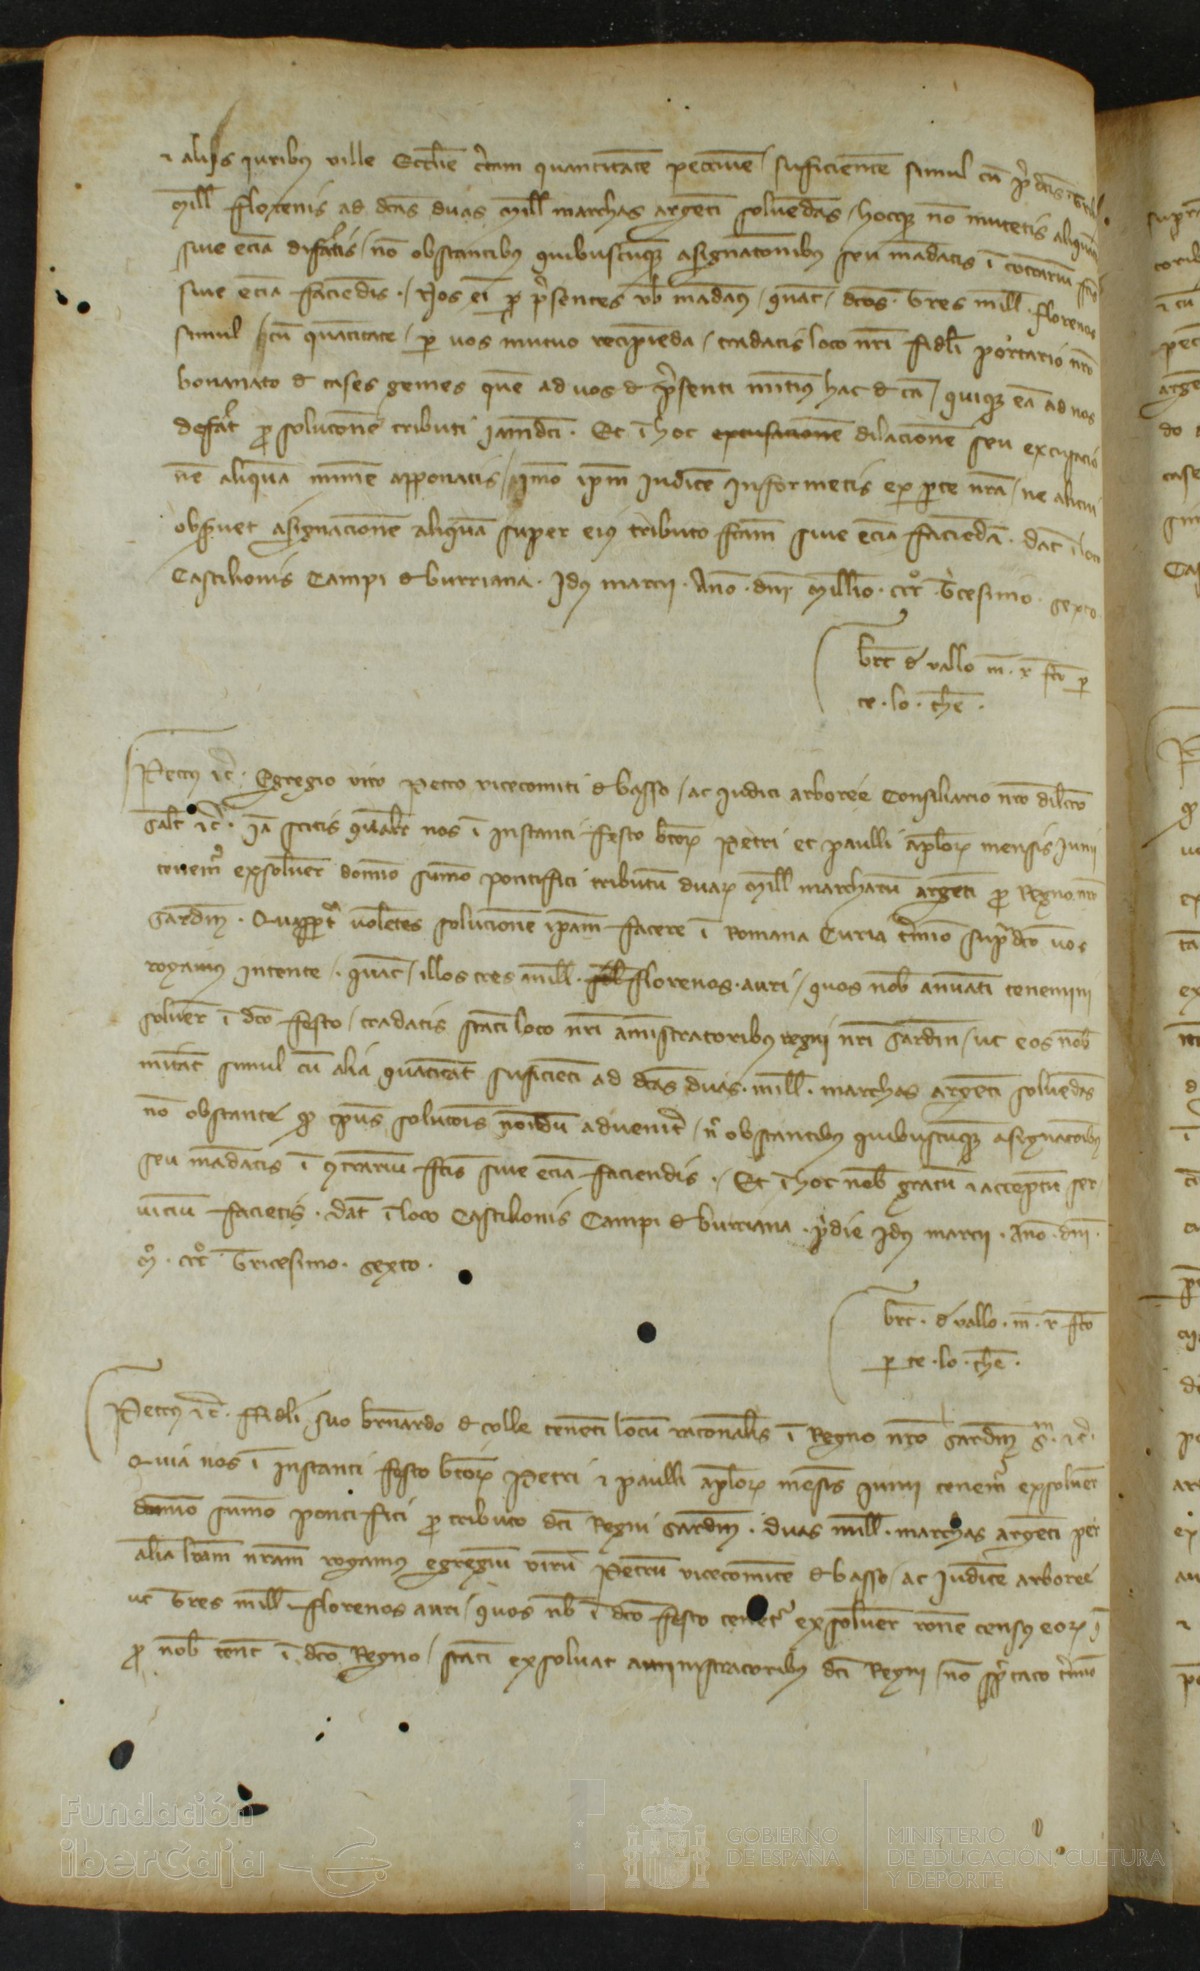 & aliis iuribus ville Ecclie certam quantitatem peccunie / suficientem simul cum predictis tribus
mill florenis ad dictas duas mill marchas argenti solvendas / hocque non mutetis aliquatenus
sive etiam difatis / non obstantibus quibuscumque asignationibus seu mandatis in contrarium factis
sive etiam faciendis . / Nos enim per presentes vobis mandamus / quatenus / dictos . Tres mill . florenos
simul cum quantitate / per vos mutuo recipienda / tradatis loco nostri fideli portario nostro
bonanato de cases gemes quem ad vos de presenti mitimus hac de causa / quique eam ad nos
deferat pro solucione tributi iamdicti . Et in hoc excusacionem dilacionem seu excusacio
nem aliquam minime apponatis / immo ipsum iudicem informetis ex parte nostra / ne alicui
observet asignacionem aliquam super eius tributo factam sive etiam faciendam . dat in loco
Castilionis Campi de burriana . Idus marcii . Anno . dni Millio . ccc Tricesimo . sexto
brc de vallo m . r fco per
te . lo . the .
Petrus etc . Egregio viro Petro vicecomiti de basso / ac iudici arboree Consiliario nostro dilecto
Salt etc . Iam scitis qualiter nos in instanti festo beatorum Petri et paulli aplorum mensis Junii
tenemur exsolvere domino summo pontiffici tributum duarum mill marcharum argenti pro Regno nostro
Sardin . Quapropter volentes solucionem ipsam facere in Romana Curia termino supradicto vos
rogamus intente . quatenus / illos tres mill . florenos . auri / quos nobis annuatim tenemini
solvere in dicto festo / tradatis statim loco nostri aministratoribus regni nostri Sardin / ut eos nobis
mitant simul cum alia quantitate suficienti ad dictas duas . mill . marchas argenti solvendas
non obstante quod tempus solucionis nondum advenit / nec obstantibus quibuscumque asignationibus
seu mandatis in contrarium factis sive etiam faciendis . / Et in hoc nobis gratum & acceptum ser
vicium facietis . dat in loco Castilionis Campi de burriana . pridie Idus marcii . Anno . dni .
M . ccc Tricesimo . sexto .
brc . de vallo . m . r fco
per te . lo . the .
Petrus etc . Fideli suo bernardo de colle tenenti locum racionalis in Regno nostro Sardin S . etc .
Quia nos in instanti festo beatorum Petri & paulli aplorum mensis iunii tenemur exsolvere
domino summo pontiffici pro tributo dicti Regni Sardin . duas mill . marchas argenti per
aliam literam nostram rogamus egregium virum Petrum vicecomitem de basso / ac Iudicem arboree
ut Tres mill florenos auri / quos nobis in dicto festo tenetur exsolvere racione census eorum que
pro nobis tenet in dicto Regno / statim exsolvat aministratoribus dicti Regni / non spectato termino
Fundación
iberCaja
GOBIERNO
DE ESPAÑA
MINISTERIO
DE EDUCACIÓN, CULTURA
Y DEPORTE